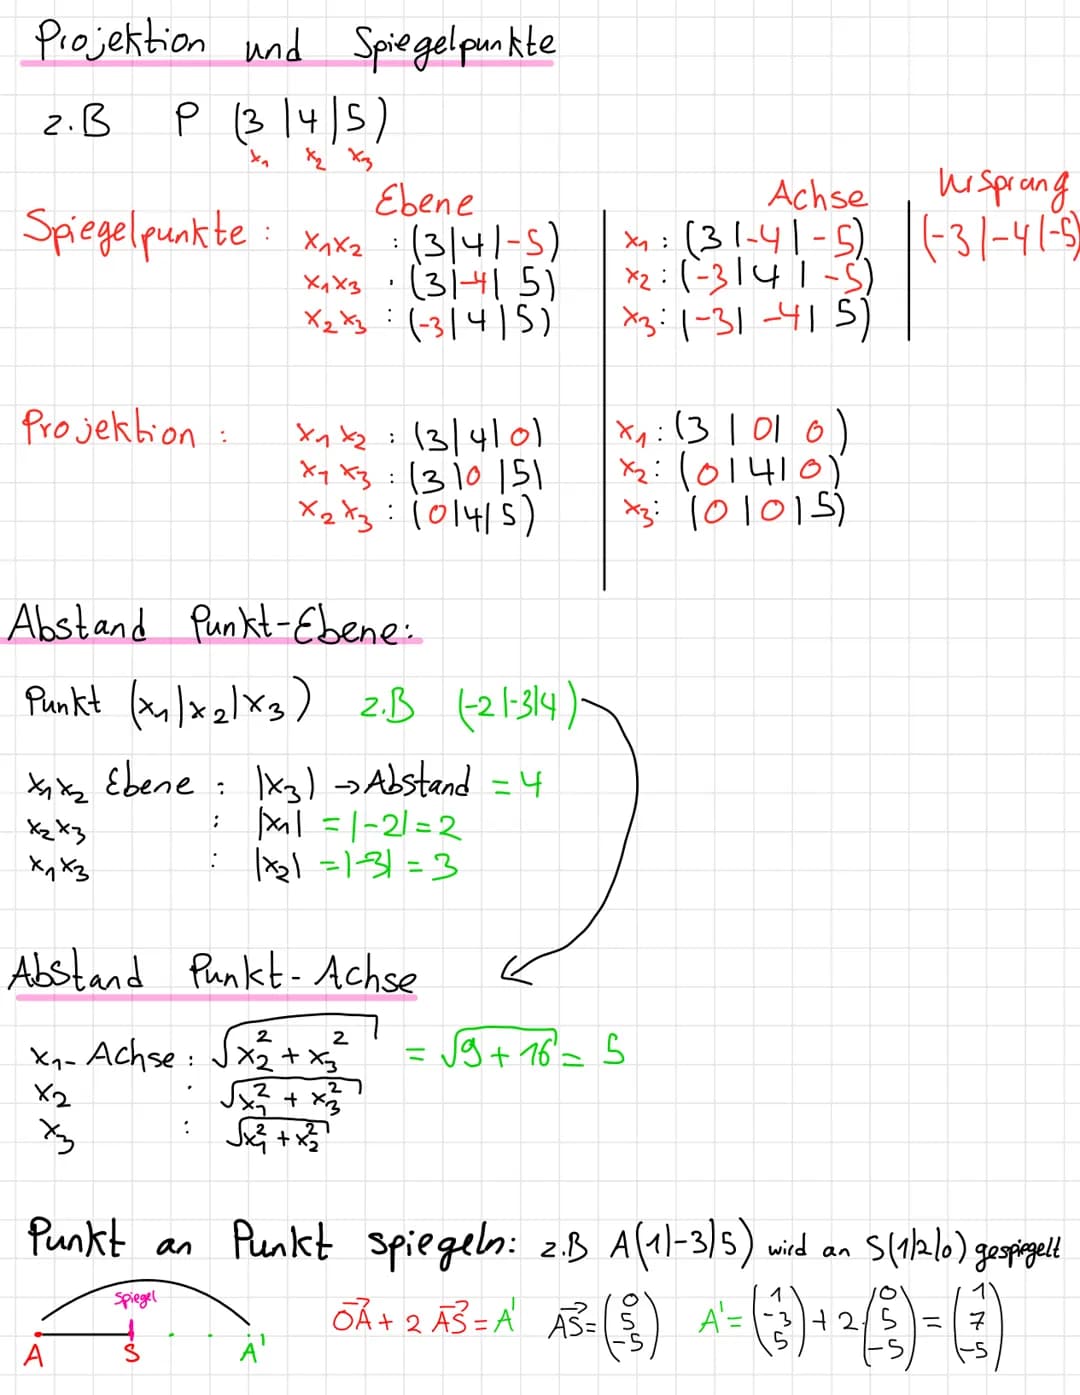 Projektion und Spiegelpunkte
z.B P (3|4|5)
x₁ x₂ x₃
Ebene Achse Ursprung
Spiegelpunkte: x₁x₂ : (3|4|-5) x₁ : (3|-4|-5) (-3|-4|-5)
x₁x₃ : (3|-4|5) x₂ : (-3|4|-5)
x₂x₃ : (-3|4|5) x₃ : (-3|-4|5)
Projektion : x₁x₂ : (3|4|0) x₁ : (3|0|0)
x₁x₃ : (3|0|5) x₂ : (0|4|0)
x₂x₃ : (0|4|5) x₃ : (0|0|5)
Abstand Punkt-Ebene:
Punkt (x₁|x₂|x₃) z.B (-2|-3|4)
x₁x₂ Ebene : |x₃| → Abstand = 4
x₂x₃ : |x₁| = |-2| = 2
x₁x₃ : |x₂| = |-3| = 3
Abstand Punkt-Achse
x₁-Achse : √(x₂² + x₃²) = √(9 + 16) = 5
x₂ : √(x₁² + x₃²)
x₃ : √(x₁² + x₂²)
Punkt an Punkt spiegeln: z.B A(1|-3|5) wird an S(1|2|0) gespiegelt
Spiegel
A S A'
OA⃗ + 2 AS⃗ = A' AS⃗ = (0 5 -5) A' = (1 -3 5) + 2·(0 5 -5) = (1 7 -5)